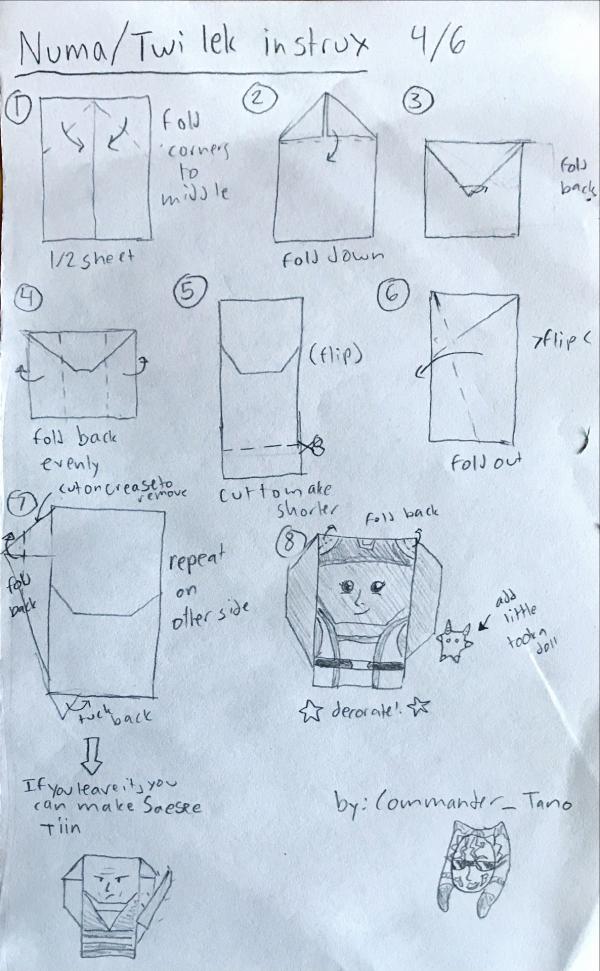 Numa/Twi lek instrux 4/6
1
Fold
corners
to
middle
1/2 sheet
2
fold down
3
fold
back
4
fold back
evenly
5
(flip)
cut to make
shorter
6
>flip<
fold out
7
cut on crease to
remove
fold
back
repeat
on
other side
tuck back
8
fold back
add
little
tooka
doll
☆ decorate! ☆
If you leave it, you
can make Saesee
Tiin
by: Commander_Tano